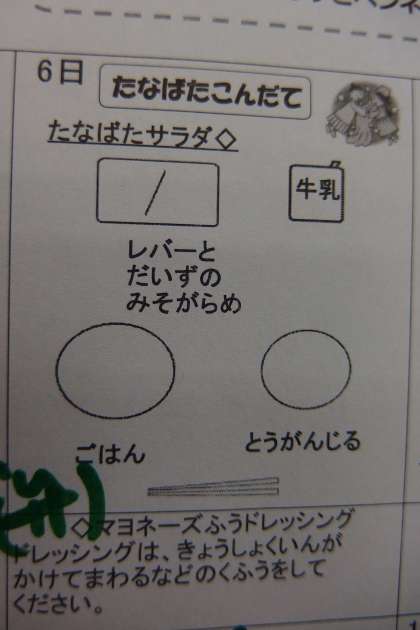 6日
たなばたこんだて
たなばたサラダ◇
牛乳
レバーと
だいずの
みそがらめ
ごはん
とうがんじる
◇マヨネーズふうドレッシング
ドレッシングは、きょうしょくいんが
かけてまわるなどのくふうをして
ください。